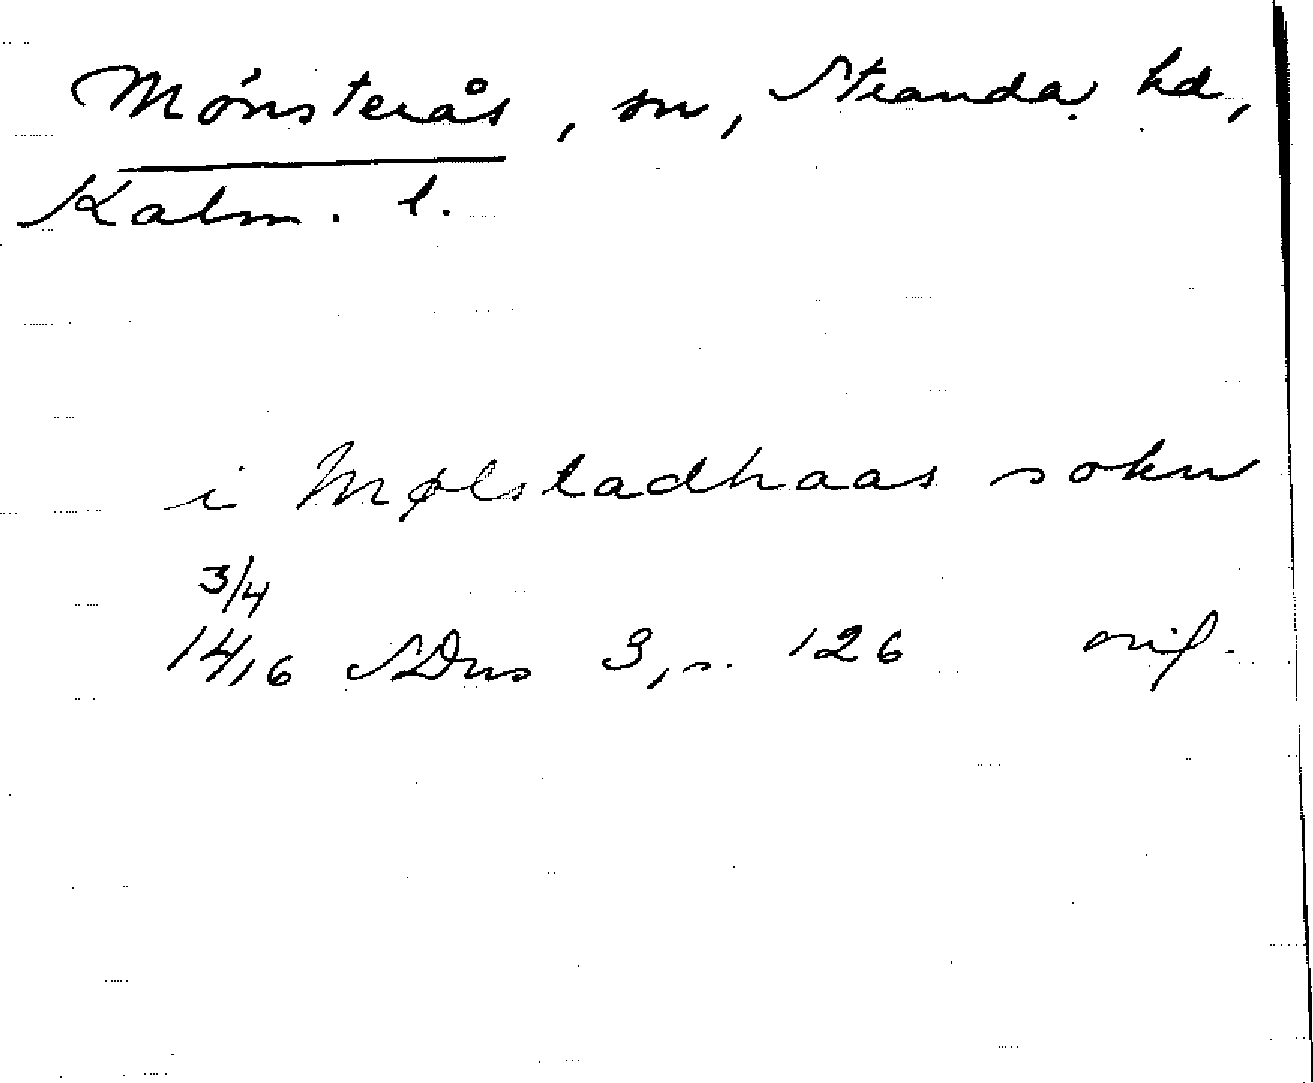 Mönsterås, sn, Stranda hd,
Kalm. l.
i Mølstadhaas sokn
3/4
1416 SDns 3, s. 126 orig.